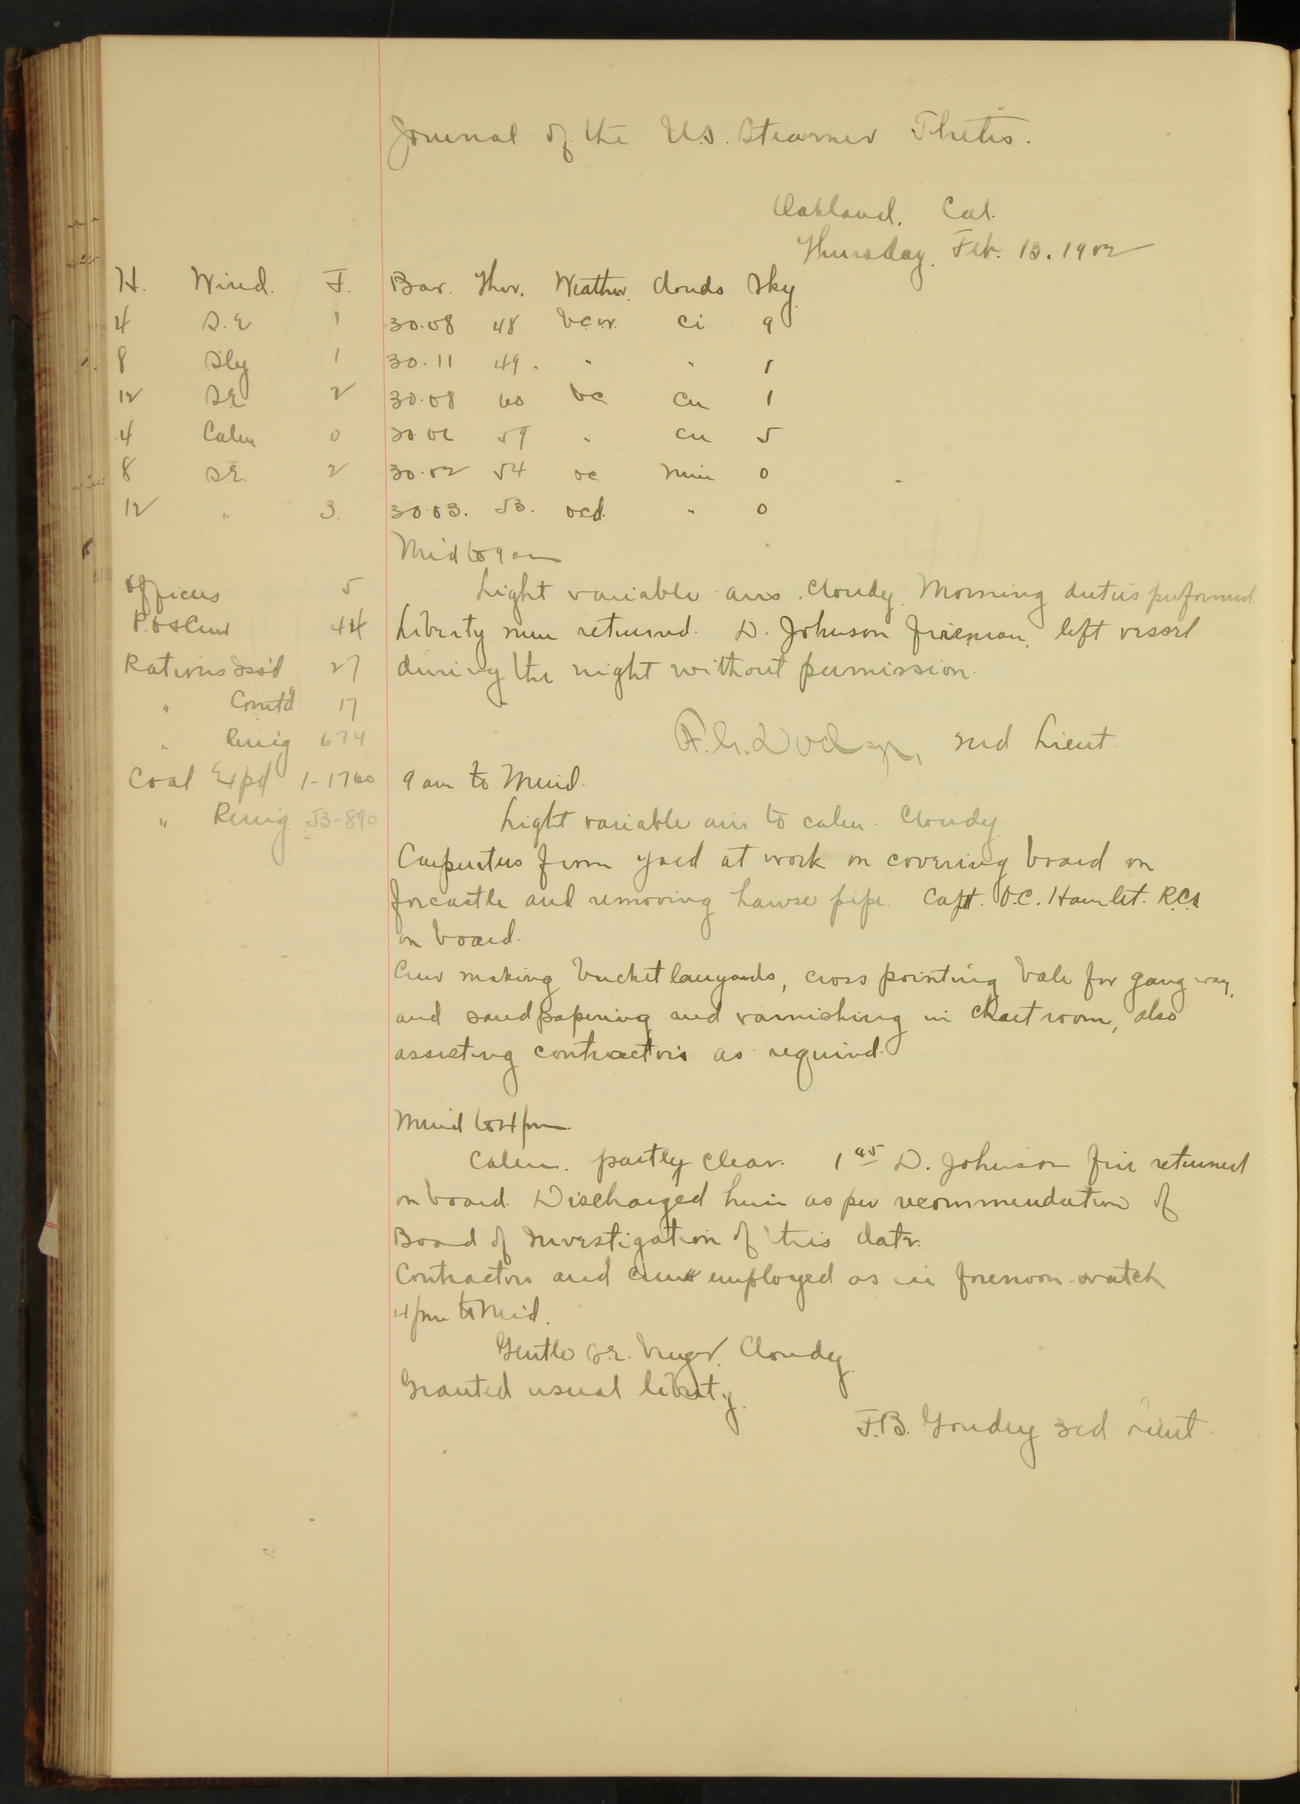 Journal of the U.S. Steamer Thetis.
Oakland, Cal.
Thursday, Feb. 13. 1902
H. Wind. F. Bar. Ther. Weather. Clouds Sky
4 S.E 1 30.08 48 bcw. ci 9
8 Sly 1 30.11 49 " " 1
12 SE 2 30.08 60 bc cu 1
4 Calm 0 30.02 59 " cu 5
8 SE 2 30.02 54 oc nim 0
12 " 3. 30.03. 53. ocd. " 0
Mid to 9 am
Officers 5
P.O & Crew 44
Rations Iss'd 27
" Comtd 17
" Rem'g 674
Coal Exp'd 1-1760
" Rem'g 53-890
Light variable airs. Cloudy. Morning duties performed.
Liberty men returned. D. Johnson fireman, left vessel
during the night without permission.
F.G. Dodge, 2nd Lieut
9 am to Merid.
Light variable airs to calm. Cloudy
Carpenters from yard at work on covering board on
forcastle and removing hawse pipe. Capt. O.C. Hamlet. R.C.S
on board.
Crew making bucket lanyards, cross pointing bale for gang way,
and sandpapering and varnishing in chart room, also
assisting contractors as required.
Merid to 4 pm
Calm. partly clear. 1 45 D. Johnson fire returned
on board. Discharged him as per recommendation of
Board of Investigation of this date.
Contractors and crew employed as in forenoon watch
4 pm to Mid.
Gentle S.E. breeze. Cloudy.
Granted usual liberty.
3rd Lieut.